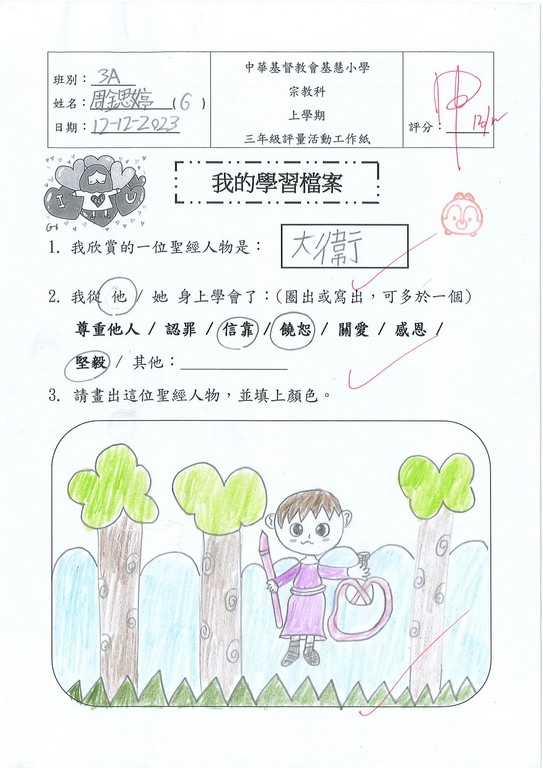 班別：3A
姓名：周鍶婷(6)
日期：12-12-2023
中華基督教會基慧小學
宗教科
上學期
三年級評量活動工作紙
評分：
I U
我的學習檔案
1. 我欣賞的一位聖經人物是：大衛
2. 我從 他 / 她 身上學會了：(圈出或寫出，可多於一個)
尊重他人 / 認罪 / 信靠 / 饒恕 / 關愛 / 感恩 /
堅毅 / 其他：
3. 請畫出這位聖經人物，並填上顏色。